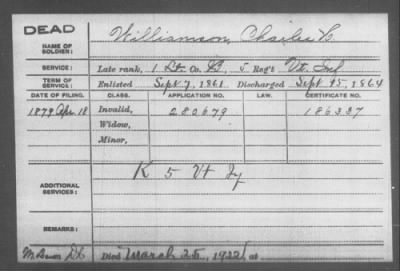 DEAD
NAME OF SOLDIER: Williamson, Charles C
SERVICE: Late rank, 1 Lt Co. G, 5 Reg't Vt. Inf
TERM OF SERVICE: Enlisted Sept 7, 1861 Discharged Sept 15, 1864
DATE OF FILING. CLASS. APPLICATION NO. LAW. CERTIFICATE NO.
1879 Apr 18 Invalid, 280679 186337
Widow,
Minor,
ADDITIONAL SERVICES: K 5 Vt Iy
REMARKS:
Died March 25, 1922, at